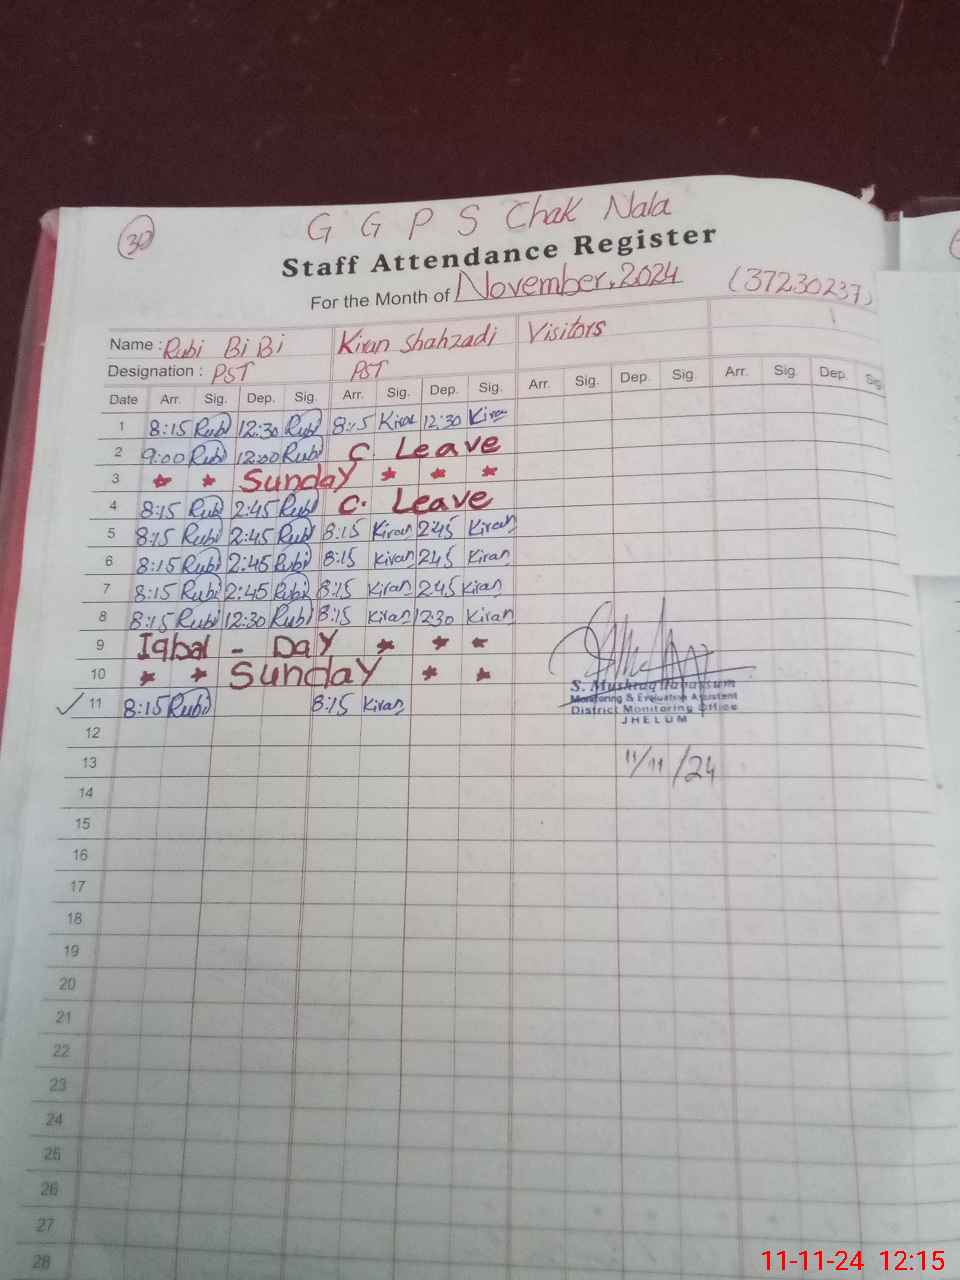 30
G G P S Chak Nala
Staff Attendance Register
For the Month of November, 2024 (37230237)
Name : Rubi BiBi Kiran Shahzadi Visitors
Designation : PST PST
Date Arr. Sig. Dep. Sig. Arr. Sig. Dep. Sig. Arr. Sig. Dep. Sig. Arr. Sig. Dep. Sig
1 8:15 Rubi 12:30 Rubi 8:15 Kiran 12:30 Kiran
2 9:00 Rubi 12:00 Rubi C. Leave
3 * * Sunday * * *
4 8:15 Rubi 2:45 Rubi C. Leave
5 8:15 Rubi 2:45 Rubi 8:15 Kiran 2:45 Kiran
6 8:15 Rubi 2:45 Rubi 8:15 Kiran 2:45 Kiran
7 8:15 Rubi 2:45 Rubi 8:15 Kiran 2:45 Kiran
8 8:15 Rubi 12:30 Rubi 8:15 Kiran 12:30 Kiran
9 Iqbal - Day * * *
10 * * Sunday * *
S. Mushtaq Tabassum
Monitoring & Evaluation Assistant
11 8:15 Rubi 8:15 Kiran
District Monitoring Office
JHELUM
12
13 11/11/24
14
15
16
17
18
19
20
21
22
23
24
25
26
27
28
11-11-24 12:15